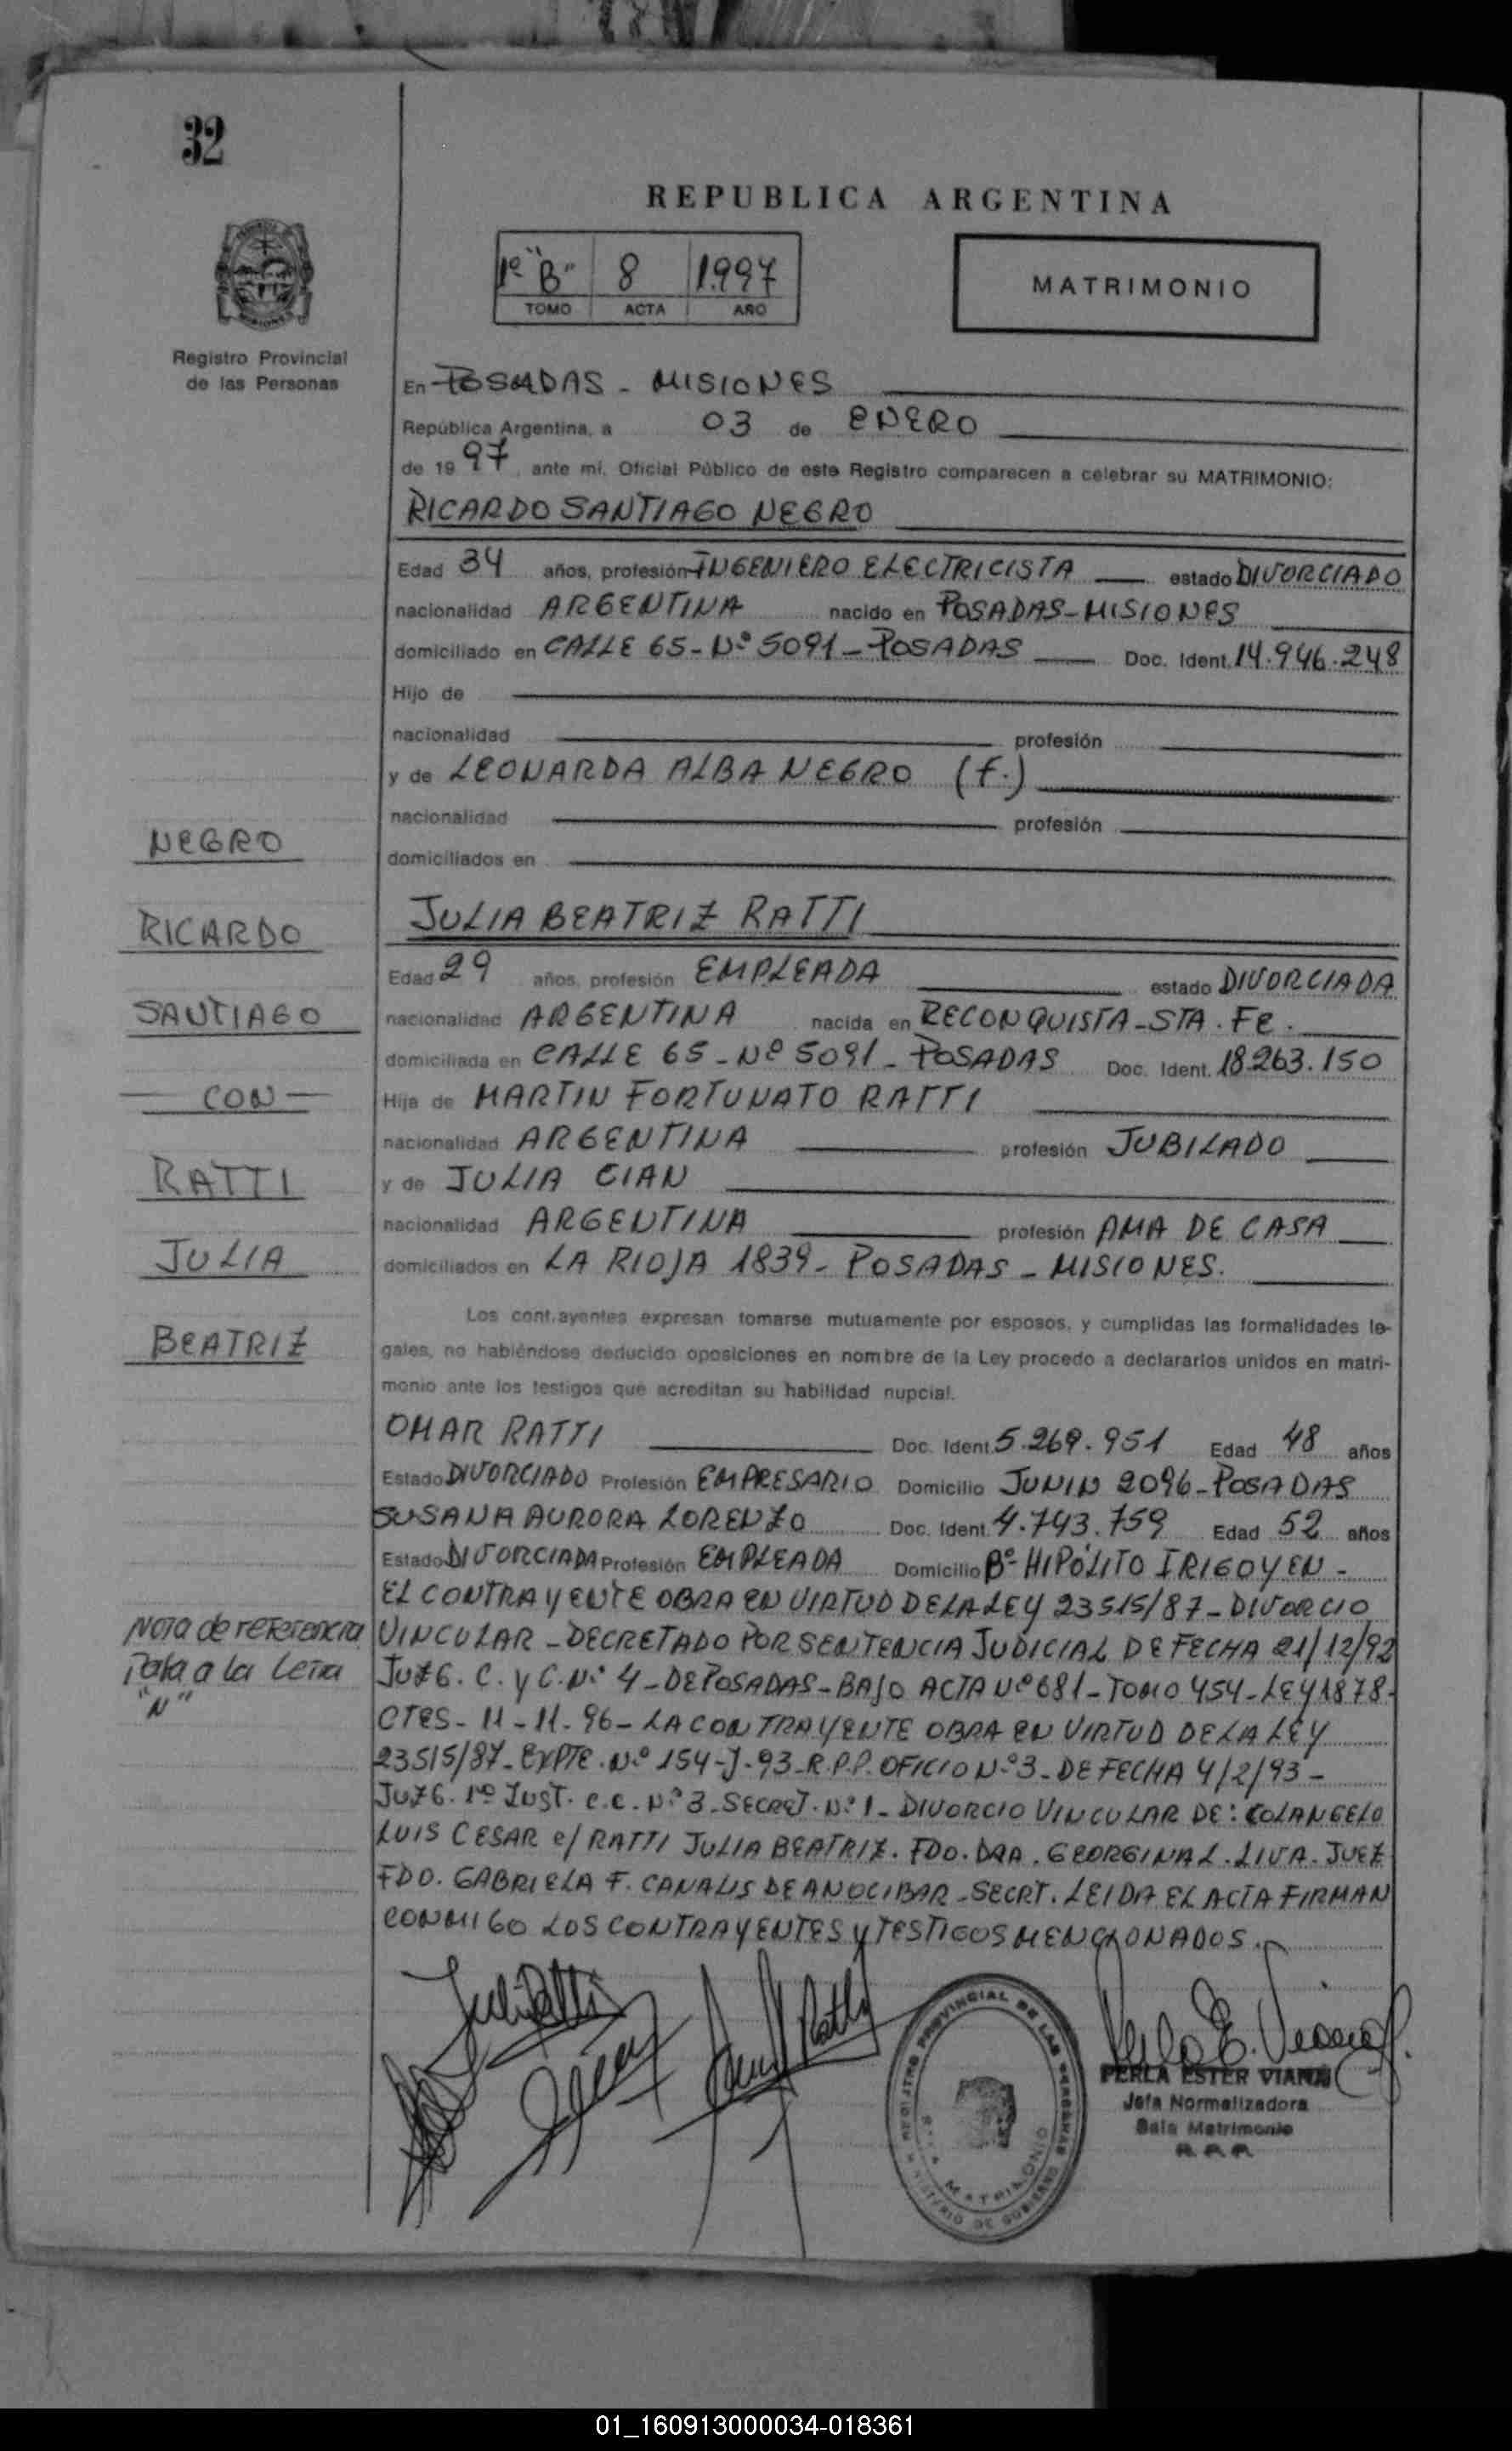 32
REPUBLICA ARGENTINA
1º "B" 8 1.997
TOMO ACTA AÑO
MATRIMONIO
Registro Provincial
de las Personas
En POSADAS - MISIONES
República Argentina, a 03 de ENERO
de 19 97, ante mí, Oficial Público de este Registro comparecen a celebrar su MATRIMONIO:
RICARDO SANTIAGO NEGRO
Edad 34 años, profesión INGENIERO ELECTRICISTA estado DIVORCIADO
nacionalidad ARGENTINA nacido en POSADAS-MISIONES
domiciliado en CALLE 65-Nº 5091-POSADAS Doc. Ident. 14.946.248
Hijo de
nacionalidad profesión
y de LEONARDA ALBA NEGRO (f.)
nacionalidad profesión
domiciliados en
NEGRO
RICARDO
SANTIAGO
- CON -
RATTI
JULIA
BEATRIZ
JULIA BEATRIZ RATTI
Edad 29 años, profesión EMPLEADA estado DIVORCIADA
nacionalidad ARGENTINA nacida en RECONQUISTA-STA. FE.
domiciliada en CALLE 65-Nº 5091-POSADAS Doc. Ident. 18.263.150
Hija de MARTIN FORTUNATO RATTI
nacionalidad ARGENTINA profesión JUBILADO
y de JULIA CIAN
nacionalidad ARGENTINA profesión AMA DE CASA
domiciliados en LA RIOJA 1839- POSADAS - MISIONES.
Los cont.ayentes expresan tomarse mutuamente por esposos, y cumplidas las formalidades le-
gales, no habiéndose deducido oposiciones en nombre de la Ley procedo a declararlos unidos en matri-
monio ante los testigos que acreditan su habilidad nupcial.
OMAR RATTI Doc. Ident. 5.269.951 Edad 48 años
Estado DIVORCIADO Profesión EMPRESARIO Domicilio JUNIN 2096-POSADAS
SUSANA AURORA LORENZO Doc. Ident. 4.743.759 Edad 52 años
Estado DIVORCIADA Profesión EMPLEADA Domicilio Bº- HIPÓLITO IRIGOYEN -
EL CONTRAYENTE OBRA EN VIRTUD DE LA LEY 23515/87-DIVORCIO
VINCULAR-DECRETADO POR SENTENCIA JUDICIAL DE FECHA 21/12/92
JUZG. C. y C. Nº 4-DE POSADAS-BAJO ACTA Nº 681-TOMO 454-LEY 1878-
CTES-11-11-96-LA CONTRAYENTE OBRA EN VIRTUD DE LA LEY
23515/87-EXPTE. Nº 154-J-93-R.P.P. OFICIO Nº 3-DE FECHA 4/2/93-
JUZG. 1º INST. C.C. Nº 3-SECRET. Nº 1-DIVORCIO VINCULAR DE: COLANGELO
LUIS CESAR c/ RATTI JULIA BEATRIZ. FDO. DRA. GEORGINA L. LIVA. JUEZ
FDO. GABRIELA F. CANALIS DE ANOCIBAR-SECRT. LEIDA EL ACTA FIRMAN
CONMIGO LOS CONTRAYENTES y TESTIGOS MENCIONADOS.
Nota de referencia
Pasa a la Letra
"N"
REGISTRO PROVINCIAL DE LAS PERSONAS
MINISTERIO DE GOBIERNO
MATRIMONIO
PERLA ESTER VIANA
Jefa Normalizadora
Sala Matrimonio
R. P. P.
01_160913000034-018361